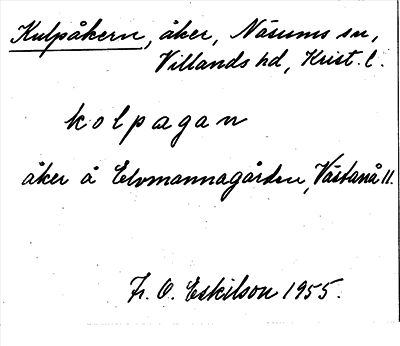 Kulpåkern, åker, Näsums sn,
Villands hd, Krist. l.
kolpagan
åker å Elvmannagården, Västanå 11.
Fr. O. Eskilson 1955.